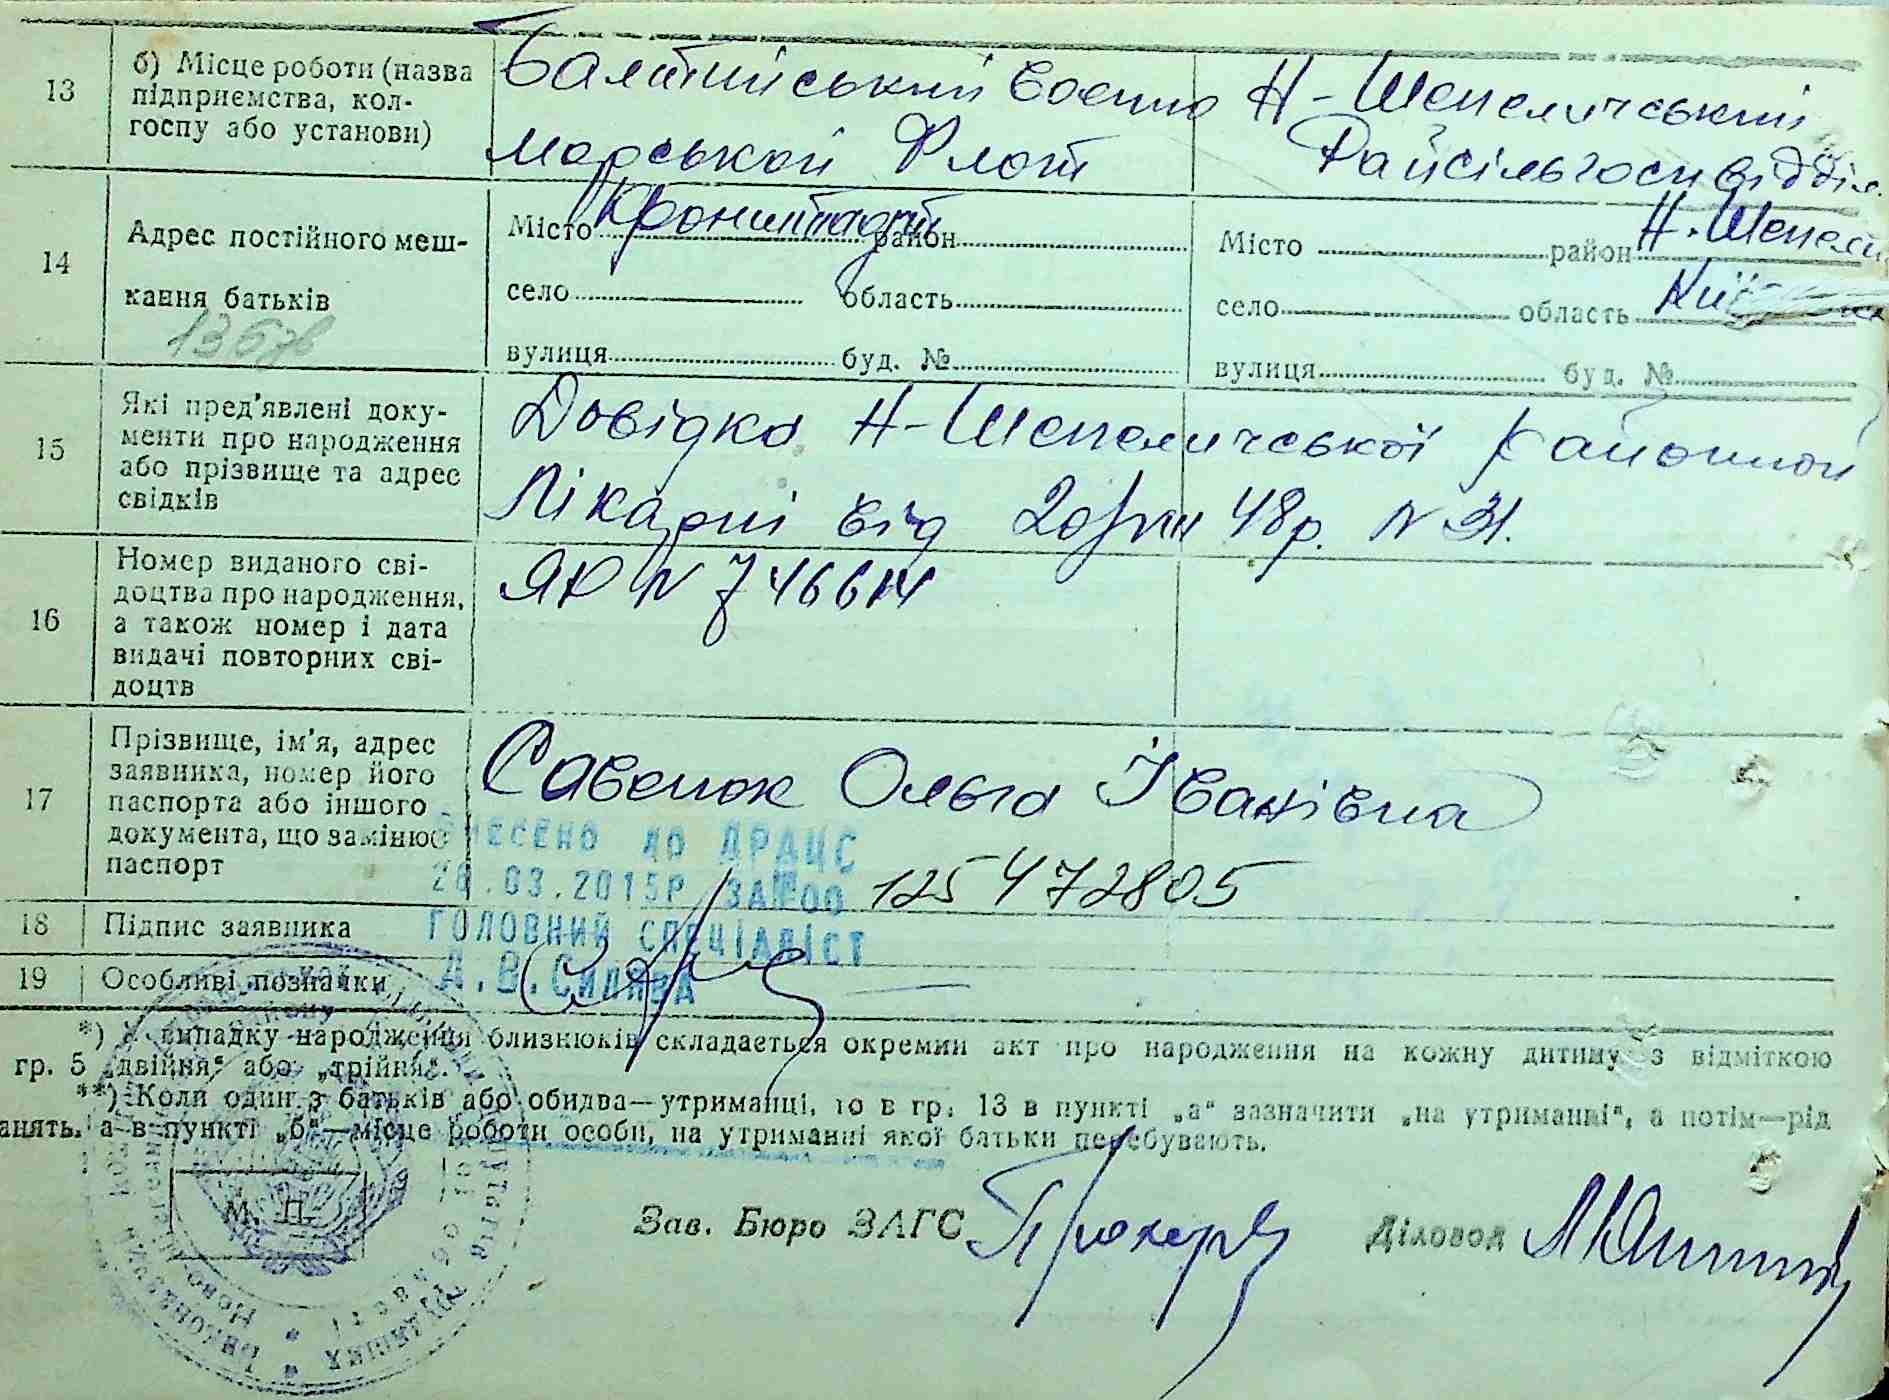 13
б) Місце роботи (назва
підприємства, кол-
госпу або установи)
Балтійський воєнно
морськой Флот
Н-Шепеличський
Райсільгоспвідділ
14
Адрес постійного меш-
кання батьків
Місто Кронштадт район
село область
вулиця буд. №
Місто район Н. Шепели
село область Київ
вулиця буд. №
15
Які пред'явлені доку-
менти про народження
або прізвище та адрес
свідків
Довідка Н-Шепеличської Районной
Лікарні від 20/VIII 48р. N 31.
16
Номер виданого сві-
доцтва про народження,
а також номер і дата
видачі повторних сві-
доцтв
ЯЮ N 746614
17
Прізвище, ім'я, адрес
заявника, номер його
паспорта або іншого
документа, що замінює
паспорт
Савенок Ольга Іванівна
ВНЕСЕНО ДО ДРАЦС
20.03.2015Р ЗА №00 125472805
ГОЛОВНИЙ СПЕЦІАЛІСТ
А.В.Силява
18 Підпис заявника
19 Особливі позначки
*) У випадку народження близнюків складається окремий акт про народження на кожну дитину з відміткою
гр. 5 „двійня“ або „трійня“.
**) Коли один з батьків або обидва—утриманці, то в гр. 13 в пункті „а“ зазначити „на утриманні“, а потім—рід
анять, а в пункті „б“—місце роботи особи, на утриманні якої батьки перебувають.
М. П.
Зав. Бюро ЗАГС
Діловод